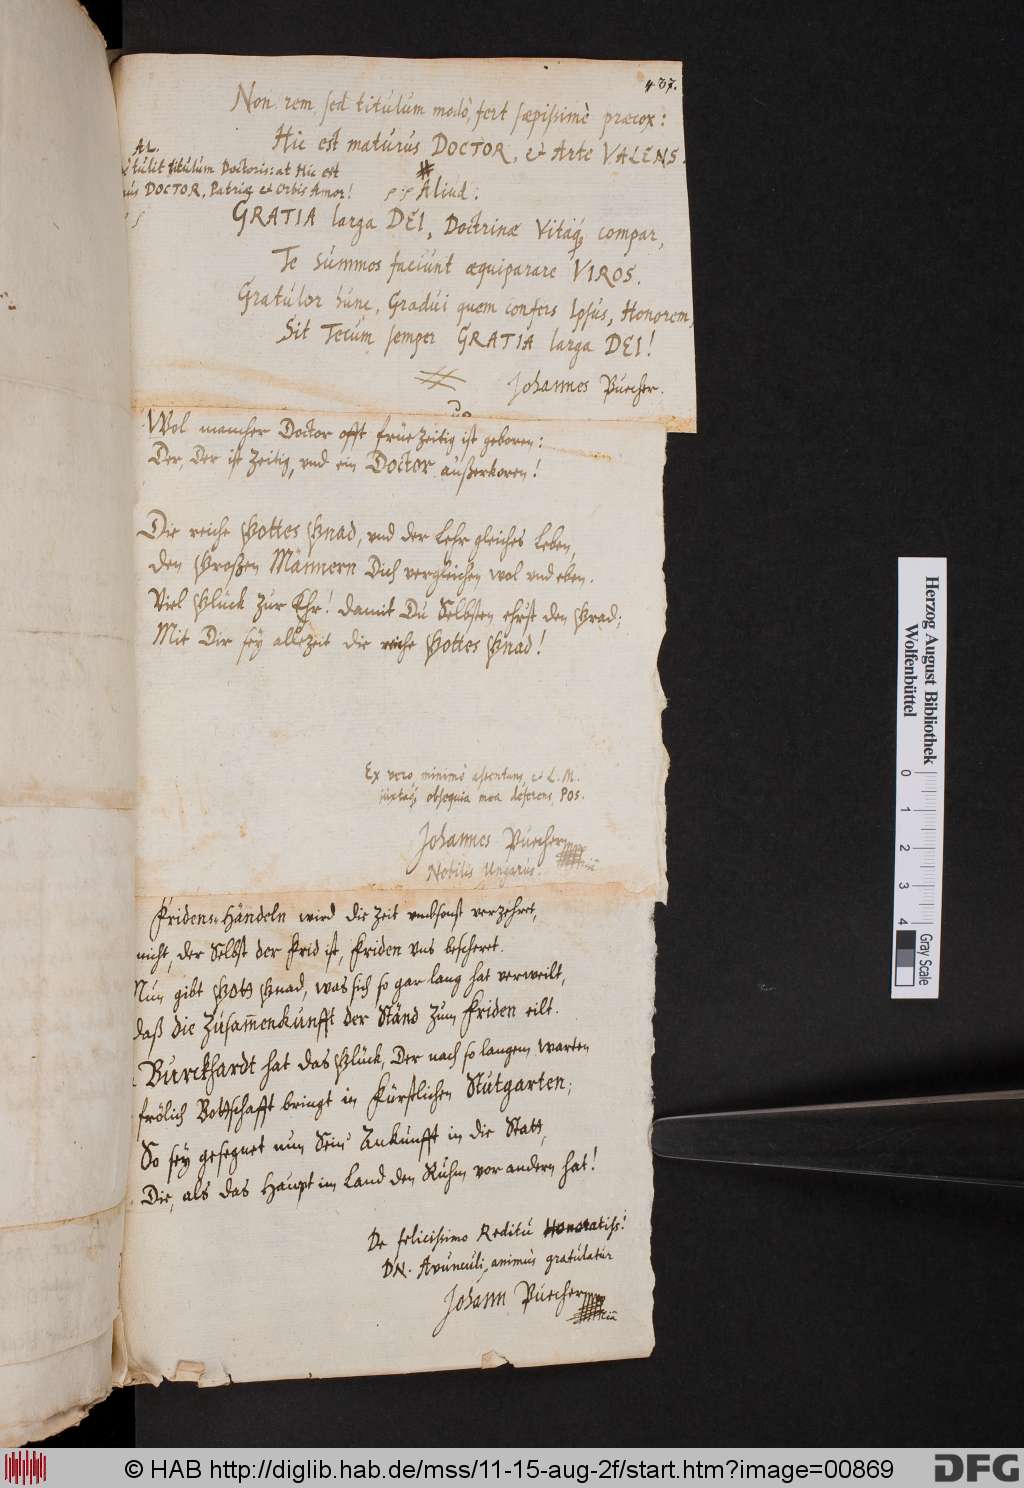 437.
Non rem, sed titulum modò, fert sæpissimè præcox:
Hic est maturus DOCTOR, et Arte VALENS.
AL.
tulit titulum Doctoris: at Hic est
DOCTOR, Patriæ et Orbis Amor!
Aliud:
GRATIA larga DEI, Doctrinæ Vitaq, compar,
Te summos faciunt æquiparare VIROS.
Gratulor hunc, Gradui quem confers Ipsus, Honorem,
Sit Tecum semper GRATIA larga DEI!
Johannes Puecher.
Wol mancher Doctor offt früezeitig ist geboren:
Der, Der ist Zeitig, vnd ein Doctor außerkoren!
Die reiche Gottes Gnad, vnd der Lehr gleiches Leben,
den Großen Männern Dich vergleichen wol vnd eben.
Viel Glück zur Ehr! damit Du Selbsten ehrst den Grad;
Mit Dir sey allezeit die reiche Gottes Gnad!
Ex vero minimè assentans, et L. M.
juxtaq, obsequia mea deferens, Pos.
Johannes Puecher
Nobilis Ungarus.
Fridens-Händeln wird die Zeit vmbsonst verzehret,
nicht, der Selbst der Frid ist, Friden vns bescheret.
Nun gibt Gott Gnad, was sich so gar lang hat verweilt,
daß die Zusam̅enkunfft der Ständ zum Friden eilt.
Burckhardt hat das Glück, Der nach so langem warten
frölich Bottschafft bringt in Fürstlichen Stutgarten;
So sey gesegnet nun Sein Ankunfft in die Statt,
Die, als das Haupt im Land den Ruhm vor andern hat!
De felicissimo Reditu Honoratiss!
DN. Avunculi, animus gratulatur
Johann Puecher
Herzog August Bibliothek
Wolfenbüttel
0 1 2 3 4
Gray Scale
© HAB http://diglib.hab.de/mss/11-15-aug-2f/start.htm?image=00869
DFG